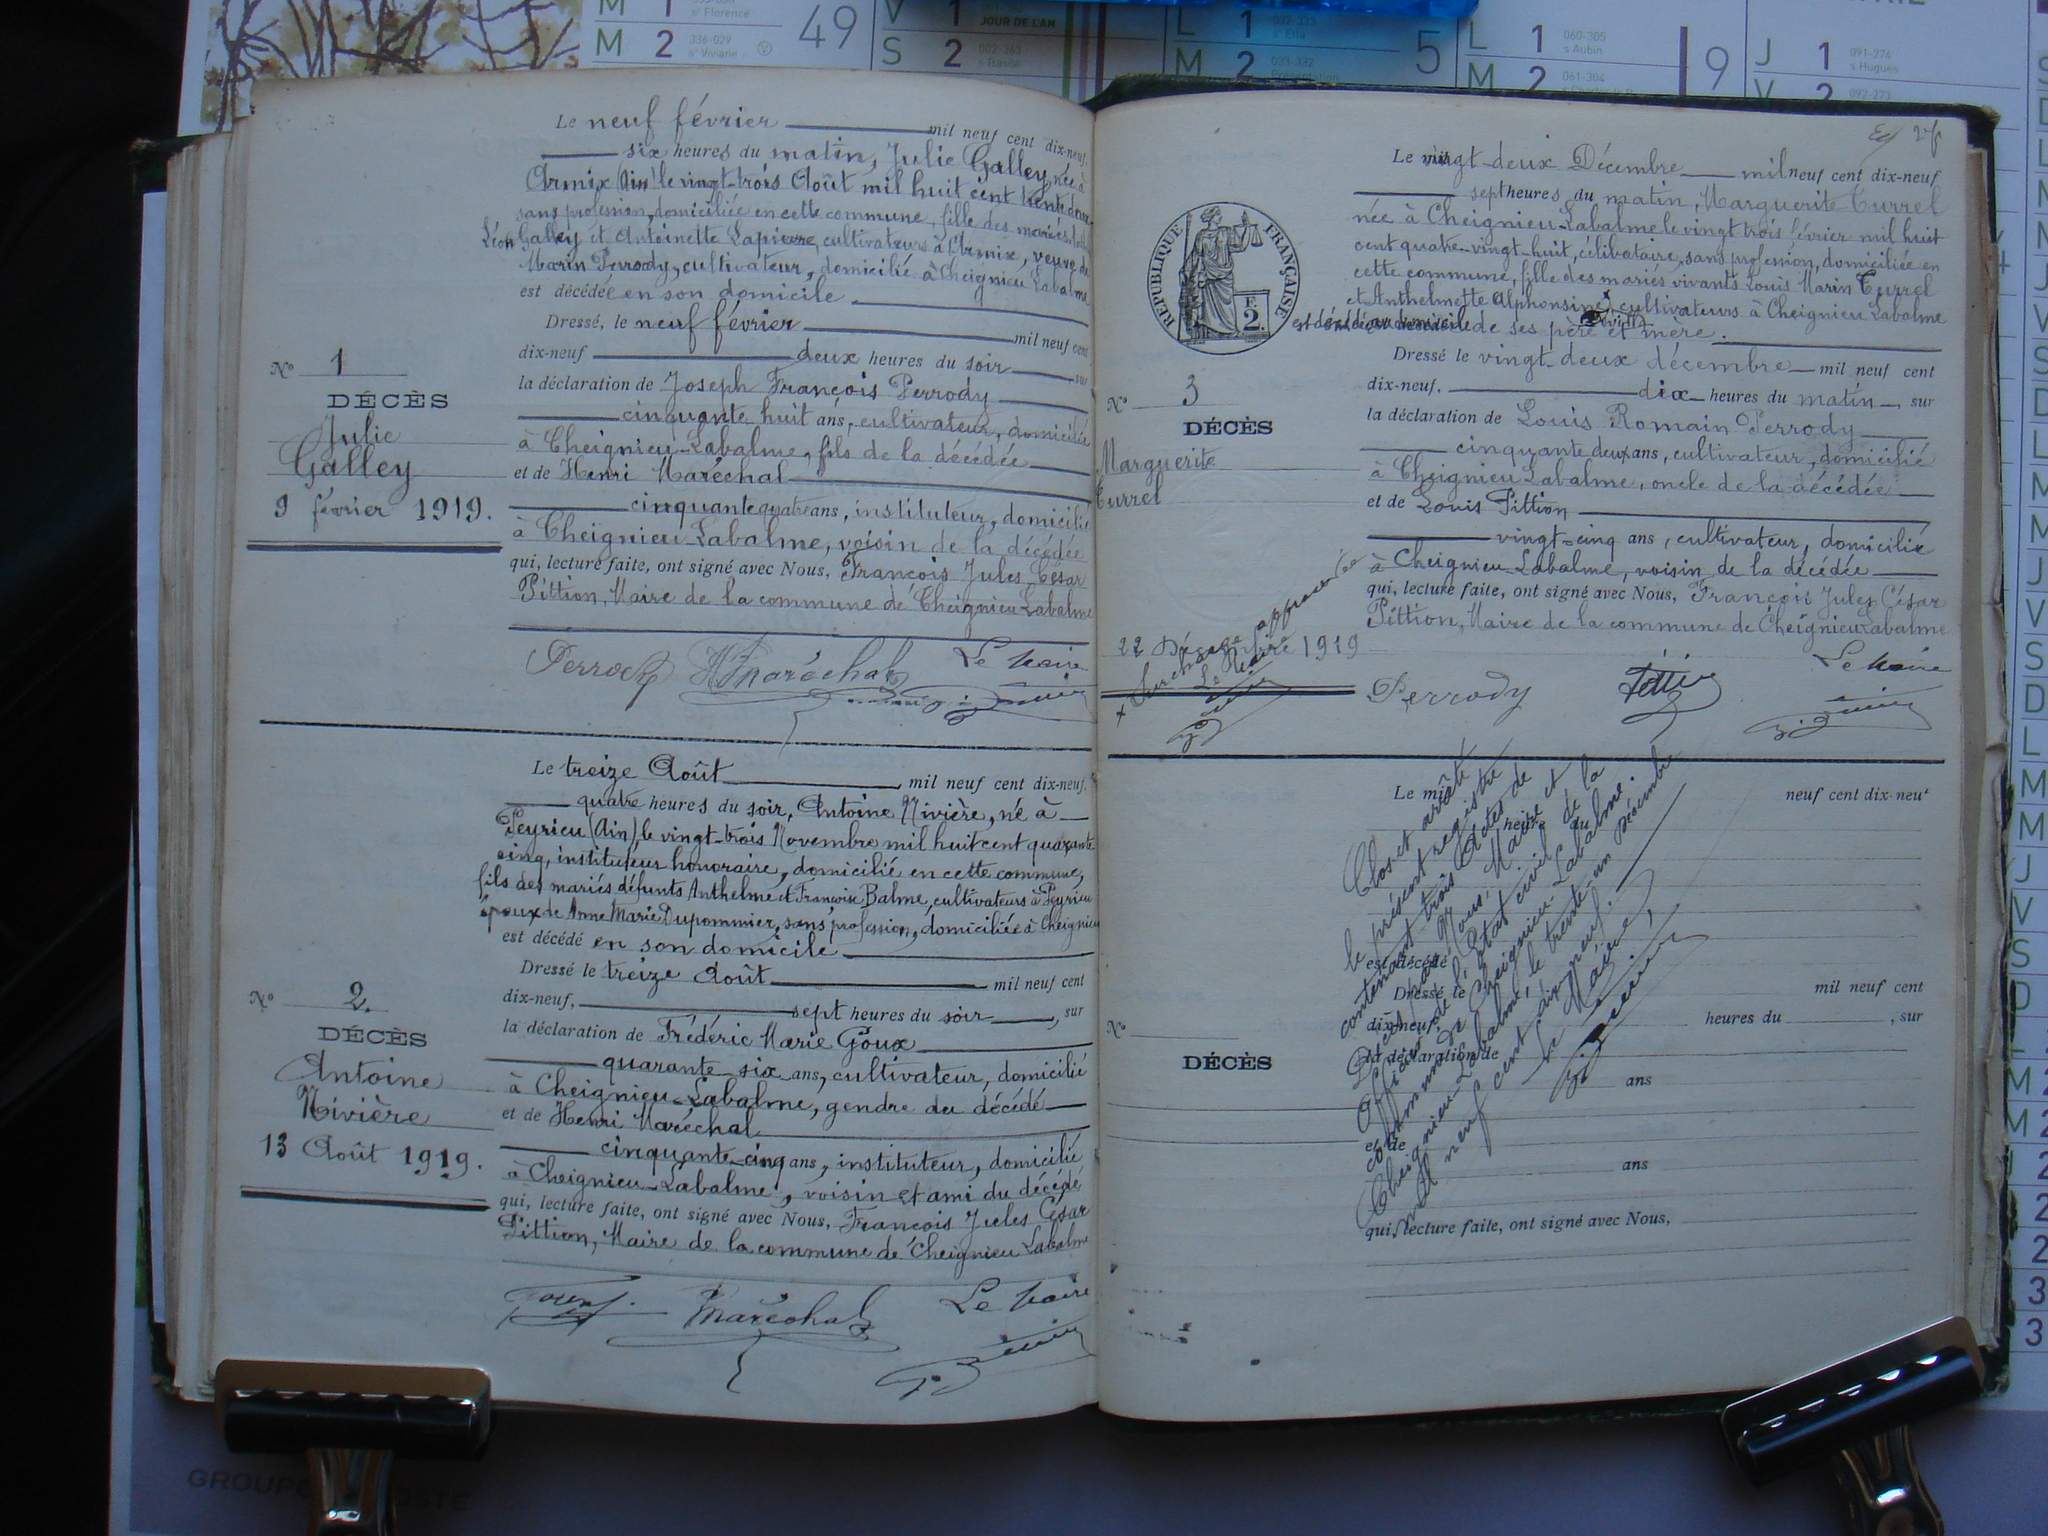 M 1 s' Florence
M 2 336-029 s' Viviane
49
V 1 JOUR DE L'AN
S 2 002-363 s Basile
L 1 s' Ella
M 2 033-332 Présentation
5
L 1 060-305 s Aubin
M 2 061-304
9
J 1 091-274 s Hugues
V 2 092-273
Le neuf février mil neuf cent dix-neuf,
six heures du matin, Julie Galley, née à
Armix (Ain) le vingt-trois Août mil huit cent trente deux
sans profession, domiciliée en cette commune, fille des mariés
Léon Galley et Antoinette Lapierre, cultivateurs à Armix, veuve de
Marin Perrody, cultivateur, domicilié à Cheignieu Labalme
est décédée en son domicile
Dressé, le neuf février mil neuf cent
dix-neuf deux heures du soir sur
la déclaration de Joseph François Perrody
cinquante huit ans, cultivateur, domicilié
à Cheignieu-Labalme, fils de la décédée
et de Henri Maréchal
cinquante quatre ans, instituteur, domicilié
à Cheignieu-Labalme, voisin de la décédée
qui, lecture faite, ont signé avec Nous, François Jules César
Pittion, Maire de la commune de Cheignieu Labalme
Perrody HMaréchal Le Maire
N° 1
DÉCÈS
Julie
Galley
9 février 1919.
Le treize Août mil neuf cent dix-neuf,
quatre heures du soir, Antoine Nivière, né à
Peyrieu (Ain), le vingt-trois Novembre mil huit cent quarante-
cinq, instituteur honoraire, domicilié en cette commune,
fils des mariés défunts Anthelme et Françoise Balme, cultivateurs à Peyrieu
époux de Anne Marie Dupommier, sans profession, domiciliée à Cheignieu
est décédé en son domicile
Dressé le treize Août mil neuf cent
dix-neuf, sept heures du soir, sur
la déclaration de Frédéric Marie Goux
quarante six ans, cultivateur, domicilié
à Cheignieu-Labalme, gendre du décédé
et de Henri Maréchal
cinquante-cinq ans, instituteur, domicilié
à Cheignieu-Labalme, voisin et ami du décédé
qui, lecture faite, ont signé avec Nous, François Jules César
Pittion, Maire de la commune de Cheignieu Labalme
Maréchal Le Maire
N° 2.
DÉCÈS
Antoine
Nivière
13 Août 1919.
Le vingt-deux Décembre mil neuf cent dix-neuf
sept heures du matin, Marguerite Turrel
née à Cheignieu-Labalme le vingt trois février mil huit
cent quatre-vingt-huit, célibataire, sans profession, domiciliée en
cette commune, fille des mariés vivants Louis Marin Turrel
et Anthelmette Alphonsine, cultivateurs à Cheignieu Labalme
est décédée au domicile de ses père et mère.
Dressé le vingt-deux décembre mil neuf cent
dix-neuf. dix heures du matin, sur
la déclaration de Louis Romain Perrody
cinquante deux ans, cultivateur, domicilié
à Cheignieu Labalme, oncle de la décédée
et de Louis Pittion
vingt-cinq ans, cultivateur, domicilié
à Cheignieu-Labalme, voisin de la décédée
qui, lecture faite, ont signé avec Nous, François Jules César
Pittion, Maire de la commune de Cheignieu Labalme
Perrody Pittion Le Maire
RÉPUBLIQUE FRANÇAISE
F. 2.
N° 3
DÉCÈS
Marguerite
Turrel
22 Décembre 1919
+ Surcharge approuvée
Le Maire
Le mil neuf cent dix-neuf
heure du
est décédé
Dressé le mil neuf cent
dix-neuf, heures du , sur
la déclaration de
ans
et de
ans
qui, lecture faite, ont signé avec Nous,
N°
DÉCÈS
Clos et arrêté
le présent registre
contenant trois Actes de
Décès par Nous, Maire et
Officier de l'état civil de la
commune de Cheignieu-Labalme.
Cheignieu-Labalme, le trente-un Décembre
mil neuf cent dix neuf.
Le Maire,
GROUPE POSTE